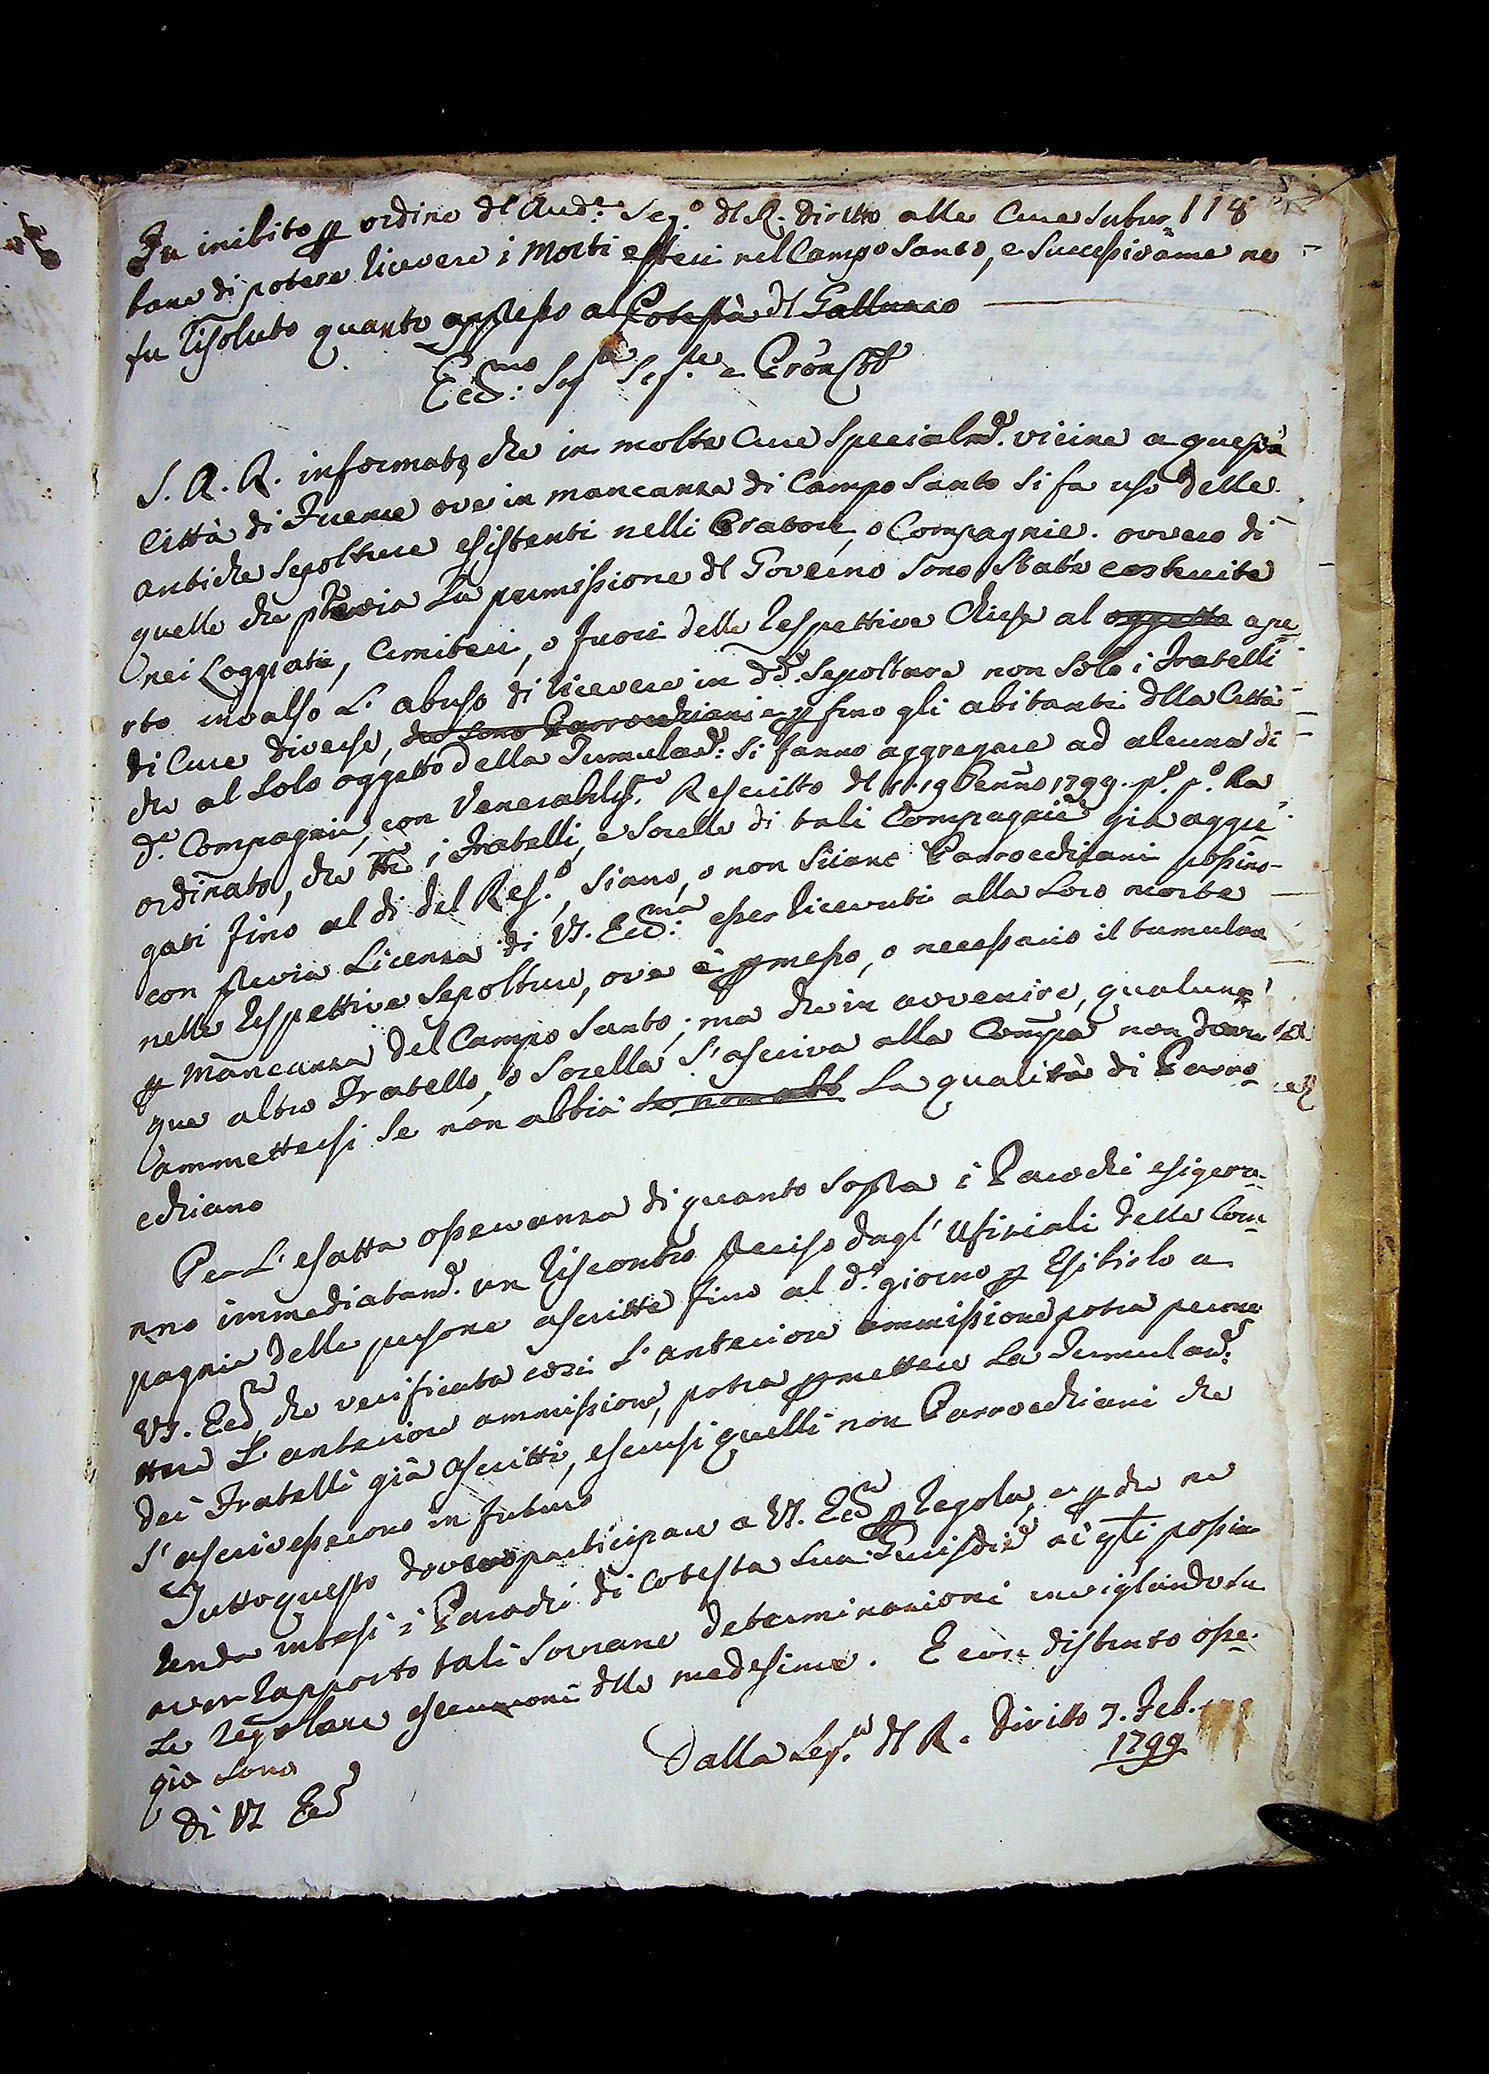 Fu inibito p ordine dl Aud.e Seg.o dl R. diritto alle Cure Subur= 118
bane di potere ricevere i Morti esteri nel Campo Santo, e Successivame ne
fu risoluto quanto appresso al Potestà dl Galluzzo
Ecc.mo Sig.re Sig.re e Pròn Col.
S. A. R. informata che in molte Cure Specialm.e vicine a questa
Città di Firenze ove in mancanza di Campo Santo si fa uso delle
antiche Sepolture esistenti nelli Oratori, o Compagnie. ovvero di
quelle che previa La permissione dl Governo Sono State costruite
nei Loggiati, Cimiteri, o fuori delle respettive Chiese al oggetto ape
rto invalso L' abuso di ricevere in dd.e Sepolture non Solo i Fratelli
di Cure diverse, che Sono Parrocchiani e p fino gli abitanti dlla Città
che al Solo oggetto della Tumulaz.e Si fanno aggregare ad alcuna di
d.e Compagnie, con Venerabiliss.o Rescritto dl dì 19 Genno 1799. p.o p.o ha
ordinato, che tti i Fratelli, e Sorelle di tali Compagnie già aggre
gati fino al dì del Res.o, siano, o non Siano Parrocchiani possino
con previa Licenza di VS. Ecc.ma esser ricevuti alla Loro morte
nelle respettive Sepolture, ove è pmesso, o necessario il tumulare
p Mancanza del Campo Santo; ma che in avvenire, qualunq
que altro Fratello, o Sorella S' ascriva alla Compa non dovra
ammettersi Se non abbia La qualità di Parro=
cchiano
Per L' esatta osservanza di quanto Sopra i Parochi esigera=
nno immediatam.e un riscontro preciso dagl' Ufiziali delle Com=
pagnie delle persone ascritte fino al d.o giorno p Esibirlo a
VS. Ecc.a che verificata così L' anteriore ammissione potra perme
ttere L' anteriore ammissione, potra pmettere La Tumulaz.e
dei Fratelli già ascritti, esclusi quelli non Parrocchiani che
S' ascrivessero in futuro
Tutto questo devo participare a VS. Ecc.a p regola, e p che ne
renda intesi i Parochi di cotesta Sua Giurisdiz.e ai qli possia
aver rapporto tali Sovrane determinazioni invigilando Su
Le regolare esecuzioni dlle medesime. E con distinto osse=
quio sono
Di VS Ecc.a
Dalla Seg.a dl R. Diritto 7. Feb.
1799